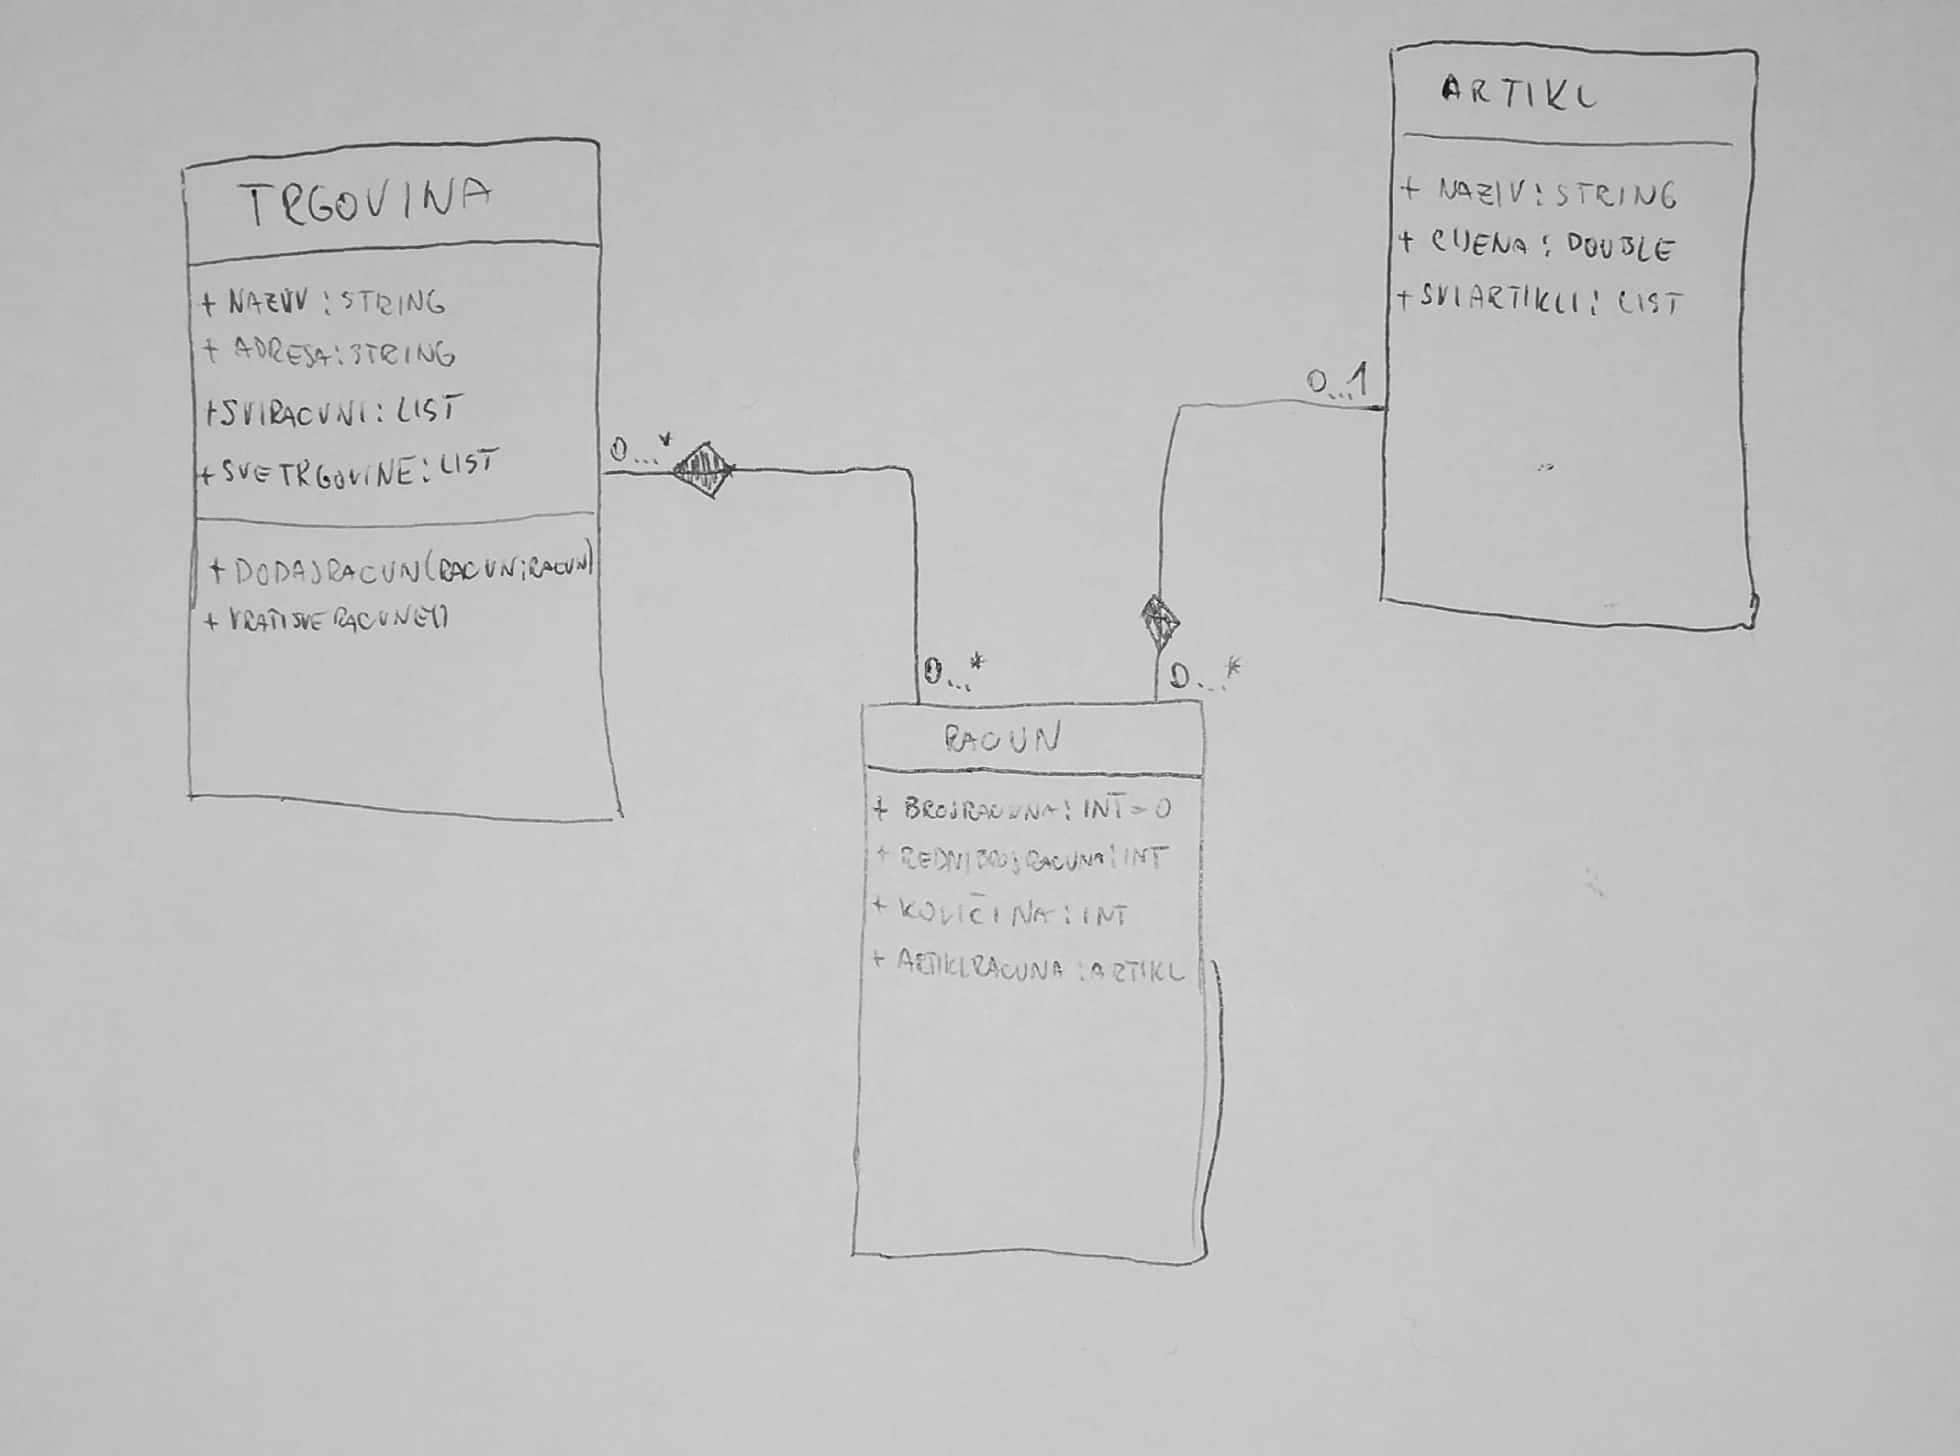 TRGOVINA
+ NAZIV : STRING
+ ADRESA : STRING
+ SVIRACUNI : LIST
+ SVETRGOVINE : LIST
+ DODAJRACUN(RACUN:RACUN)
+ VRATISVERACUNE()
0...*
0...*
ARTIKL
+ NAZIV : STRING
+ CIJENA : DOUBLE
+ SVIARTIKLI : LIST
0...1
0...*
RACUN
+ BROJRACUNA : INT = 0
+ REDNIBROJRACUNA : INT
+ KOLIČINA : INT
+ ARTIKLRACUNA : ARTIKL